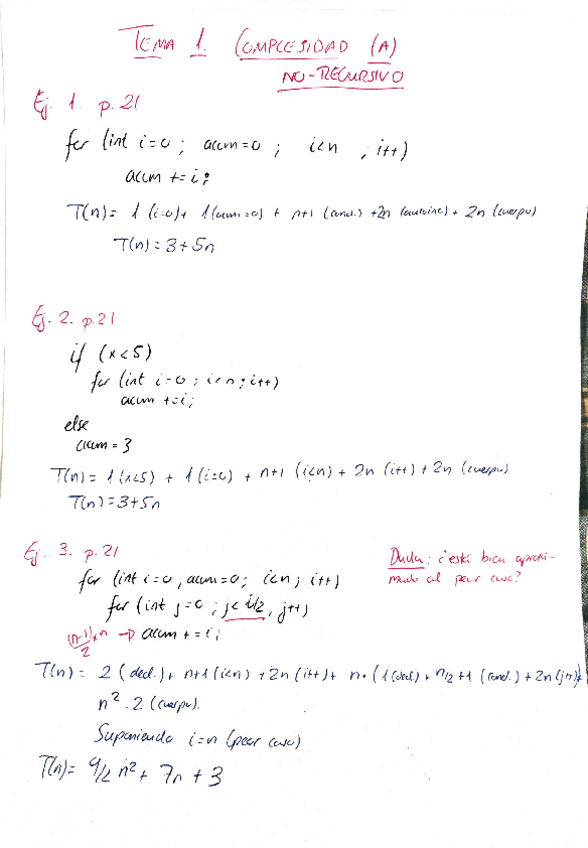 TEMA 1. COMPLESIDAD (A)
NO-RECURSIVO
Ej. 1. p. 21
for (int i=0; acum=0; i<n, i++)
acum += i;
T(n)= 1 (i=0) + 1 (acum=0) + n+1 (cond.) + 2n (autoinc) + 2n (cuerpo)
T(n)= 3+5n
Ej. 2. p.21
if (x<5)
for (int i=0; i<n; i++)
acum +=i;
else
acum = 3
T(n)= 1 (x<5) + 1 (i=0) + n+1 (i<n) + 2n (i++) + 2n (cuerpo)
T(n)=3+5n
Ej. 3. p.21
Duda: ¿está bien aproxi-
mado al peor caso?
for (int i=0, acum=0; i<n; i++)
for (int j=0; j< i/2, j++)
(n-1)*n/2 → acum += i;
T(n)= 2 (decl.) + n+1 (i<n) + 2n (i++) + n · (1 (decl) + n/2 +1 (cond.) + 2n (j++)) +
n² · 2 (cuerpo).
Suponiendo i=n (peor caso)
T(n)= 9/2 n² + 7n + 3